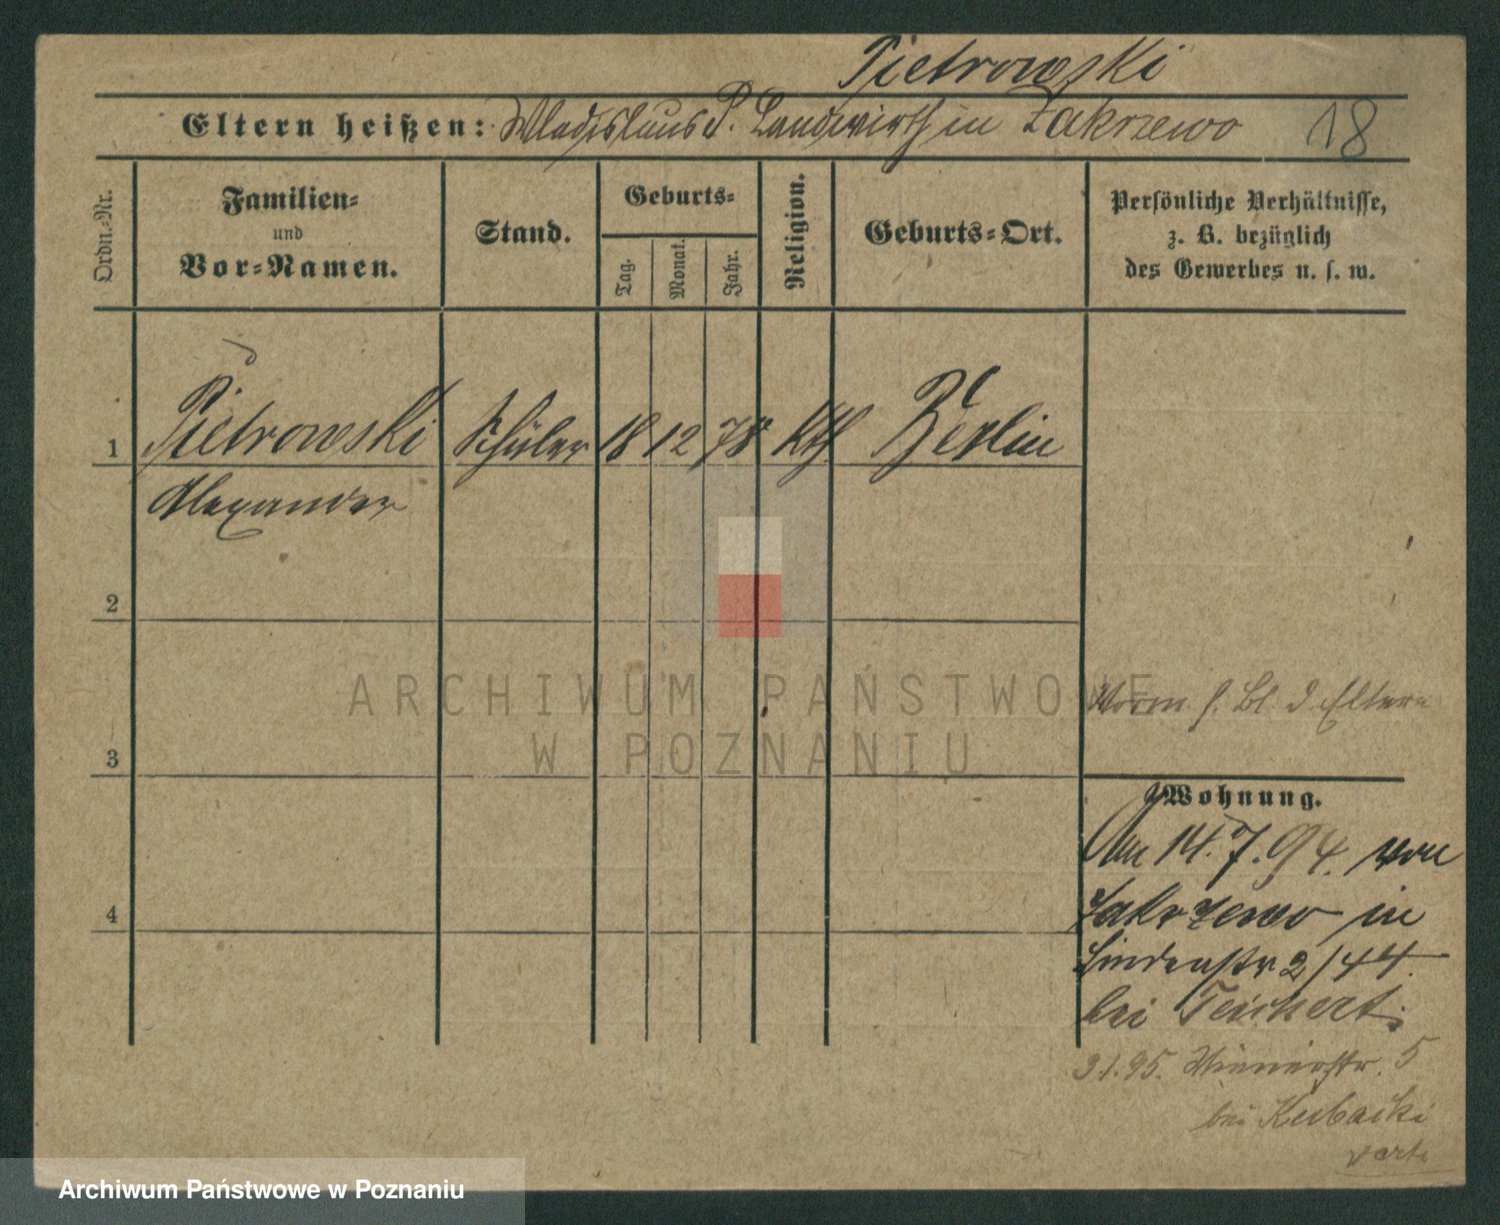 Pietrowski
Eltern heißen: Wladislaus P. Landwirth in Zakrzewo 18
Ordn.-Nr.
Familien- und Vor-Namen.
Stand.
Geburts-
Tag.
Monat.
Jahr.
Religion.
Geburts-Ort.
Persönliche Verhältnisse,
z. B. bezüglich
des Gewerbes u. s. w.
1 Pietrowski Schüler 18 12 78 kth. Berlin
Alexander
2
3
4
Worm. s. Bl. d. Eltern
Wohnung.
Am 14.7.94. von
Zakrzewo in
Lindenstr 2/44.
bei Teichert.
3.1.95. Wienerstr. 5
bei
verte
ARCHIWUM PAŃSTWOWE
W POZNANIU
Archiwum Państwowe w Poznaniu